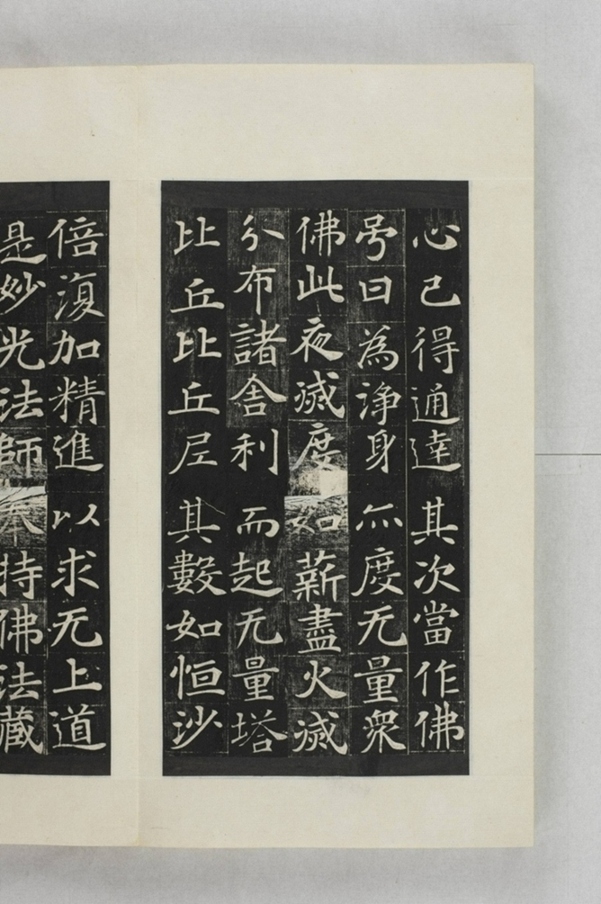 心已得通達其次當作佛
号曰為淨身亦度无量衆
佛此夜滅度如薪盡火滅
分布諸舍利而起无量塔
比丘比丘尼其數如恒沙
倍復加精進以求无上道
是妙光法師奉持佛法藏